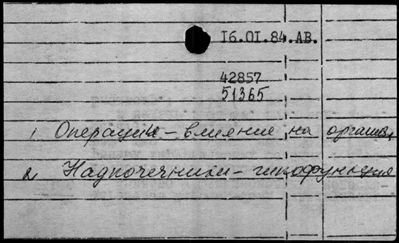 16.01.84.АВ.
42857
51365
1 Операции – влияние на организм
2 Надпочечники – гипофункция